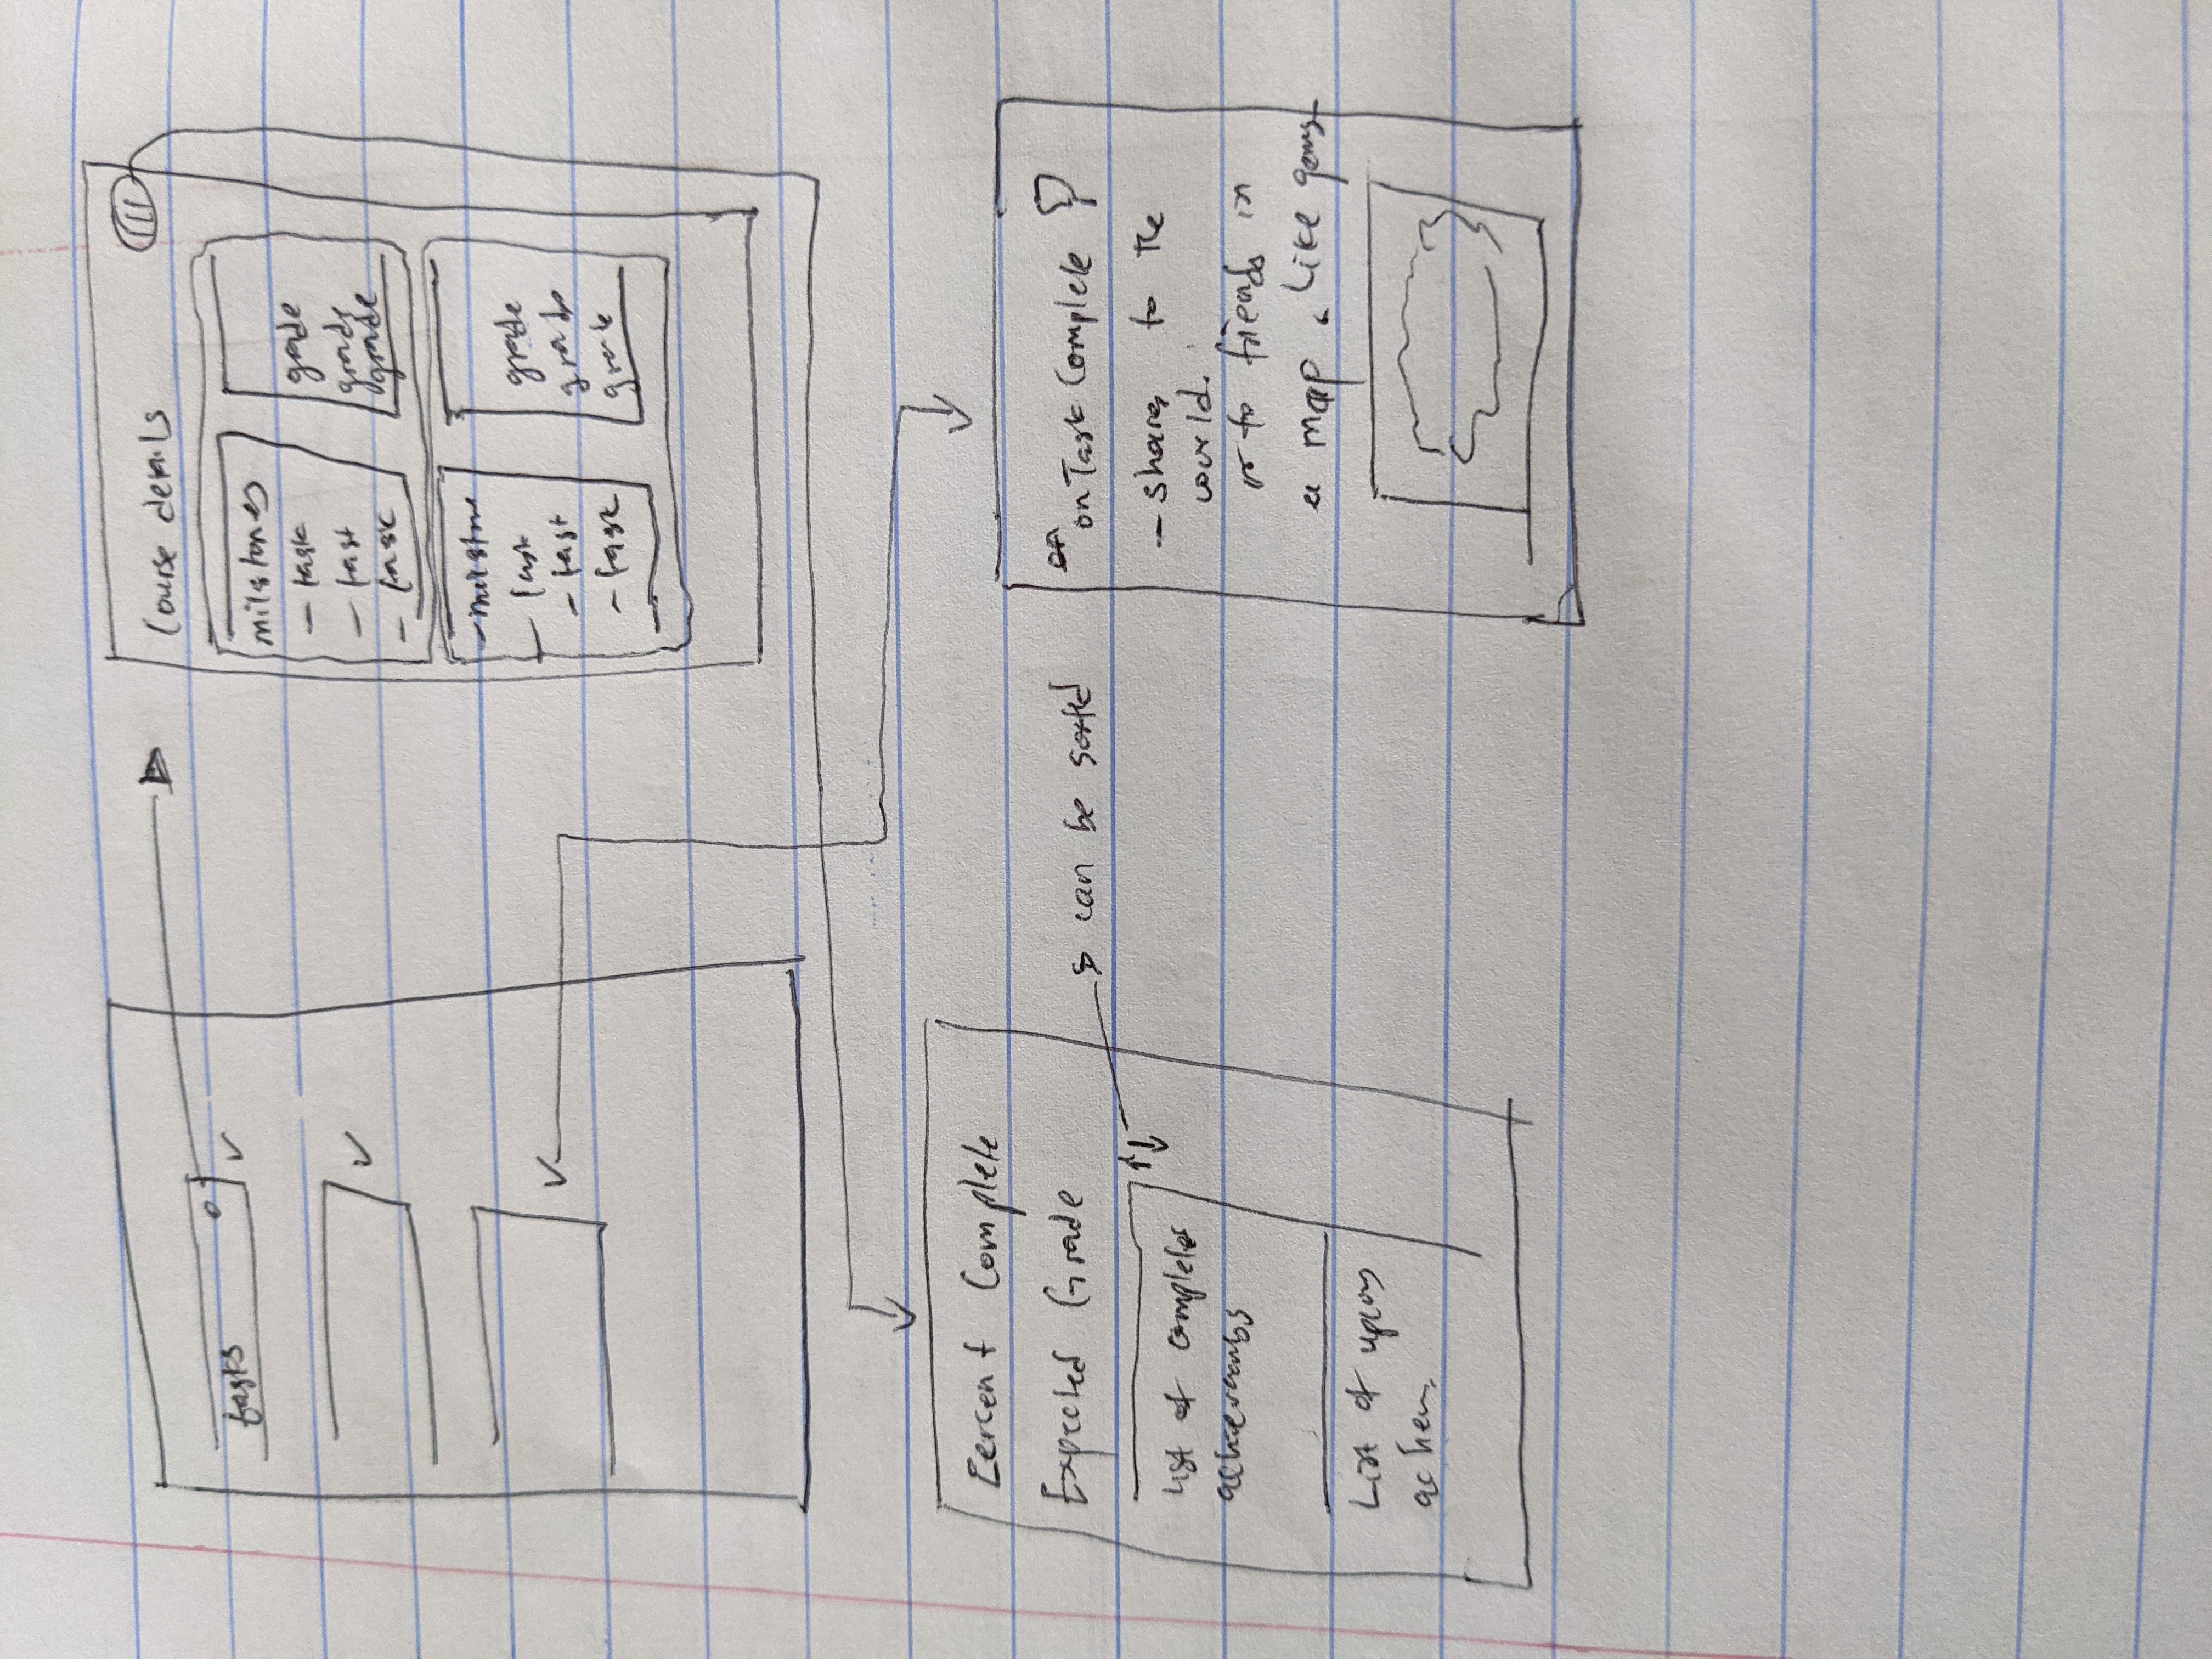 tasks
Course details
milstones
- task
- tast
- task
grade
grade
grade
- milstone
- task
- tast
- task
grade
grade
grade
Percent Complete
Expected Grade
can be sorted
List of completed
List of
on
onTaskComplete
- shares to the
world.
or to friends in
a map. Like